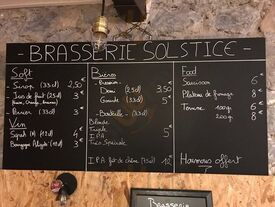 - BRASSERIE SOLSTICE -
Soft
- Sirop (33cl) 2,50
- Jus de fruit (25cl) 3€
- Perrier (33cl) 3€
Vin
Syrah (R) (12cl) 4€
Bourgogne Aligoté (12cl) 3€
Bières
- Pression -
Demi (25cl) 3,50
Grande (50cl) 6
- Bouteille - (33cl)
Blonde
Triple
I.P.A 5€
Très Spéciale
I.P.A fût de chêne (75cl) 12
Food
Saucisson 6
Plateau de fromage 8
Terrine 100g 6
200g 8
Houmous offert
Brasserie